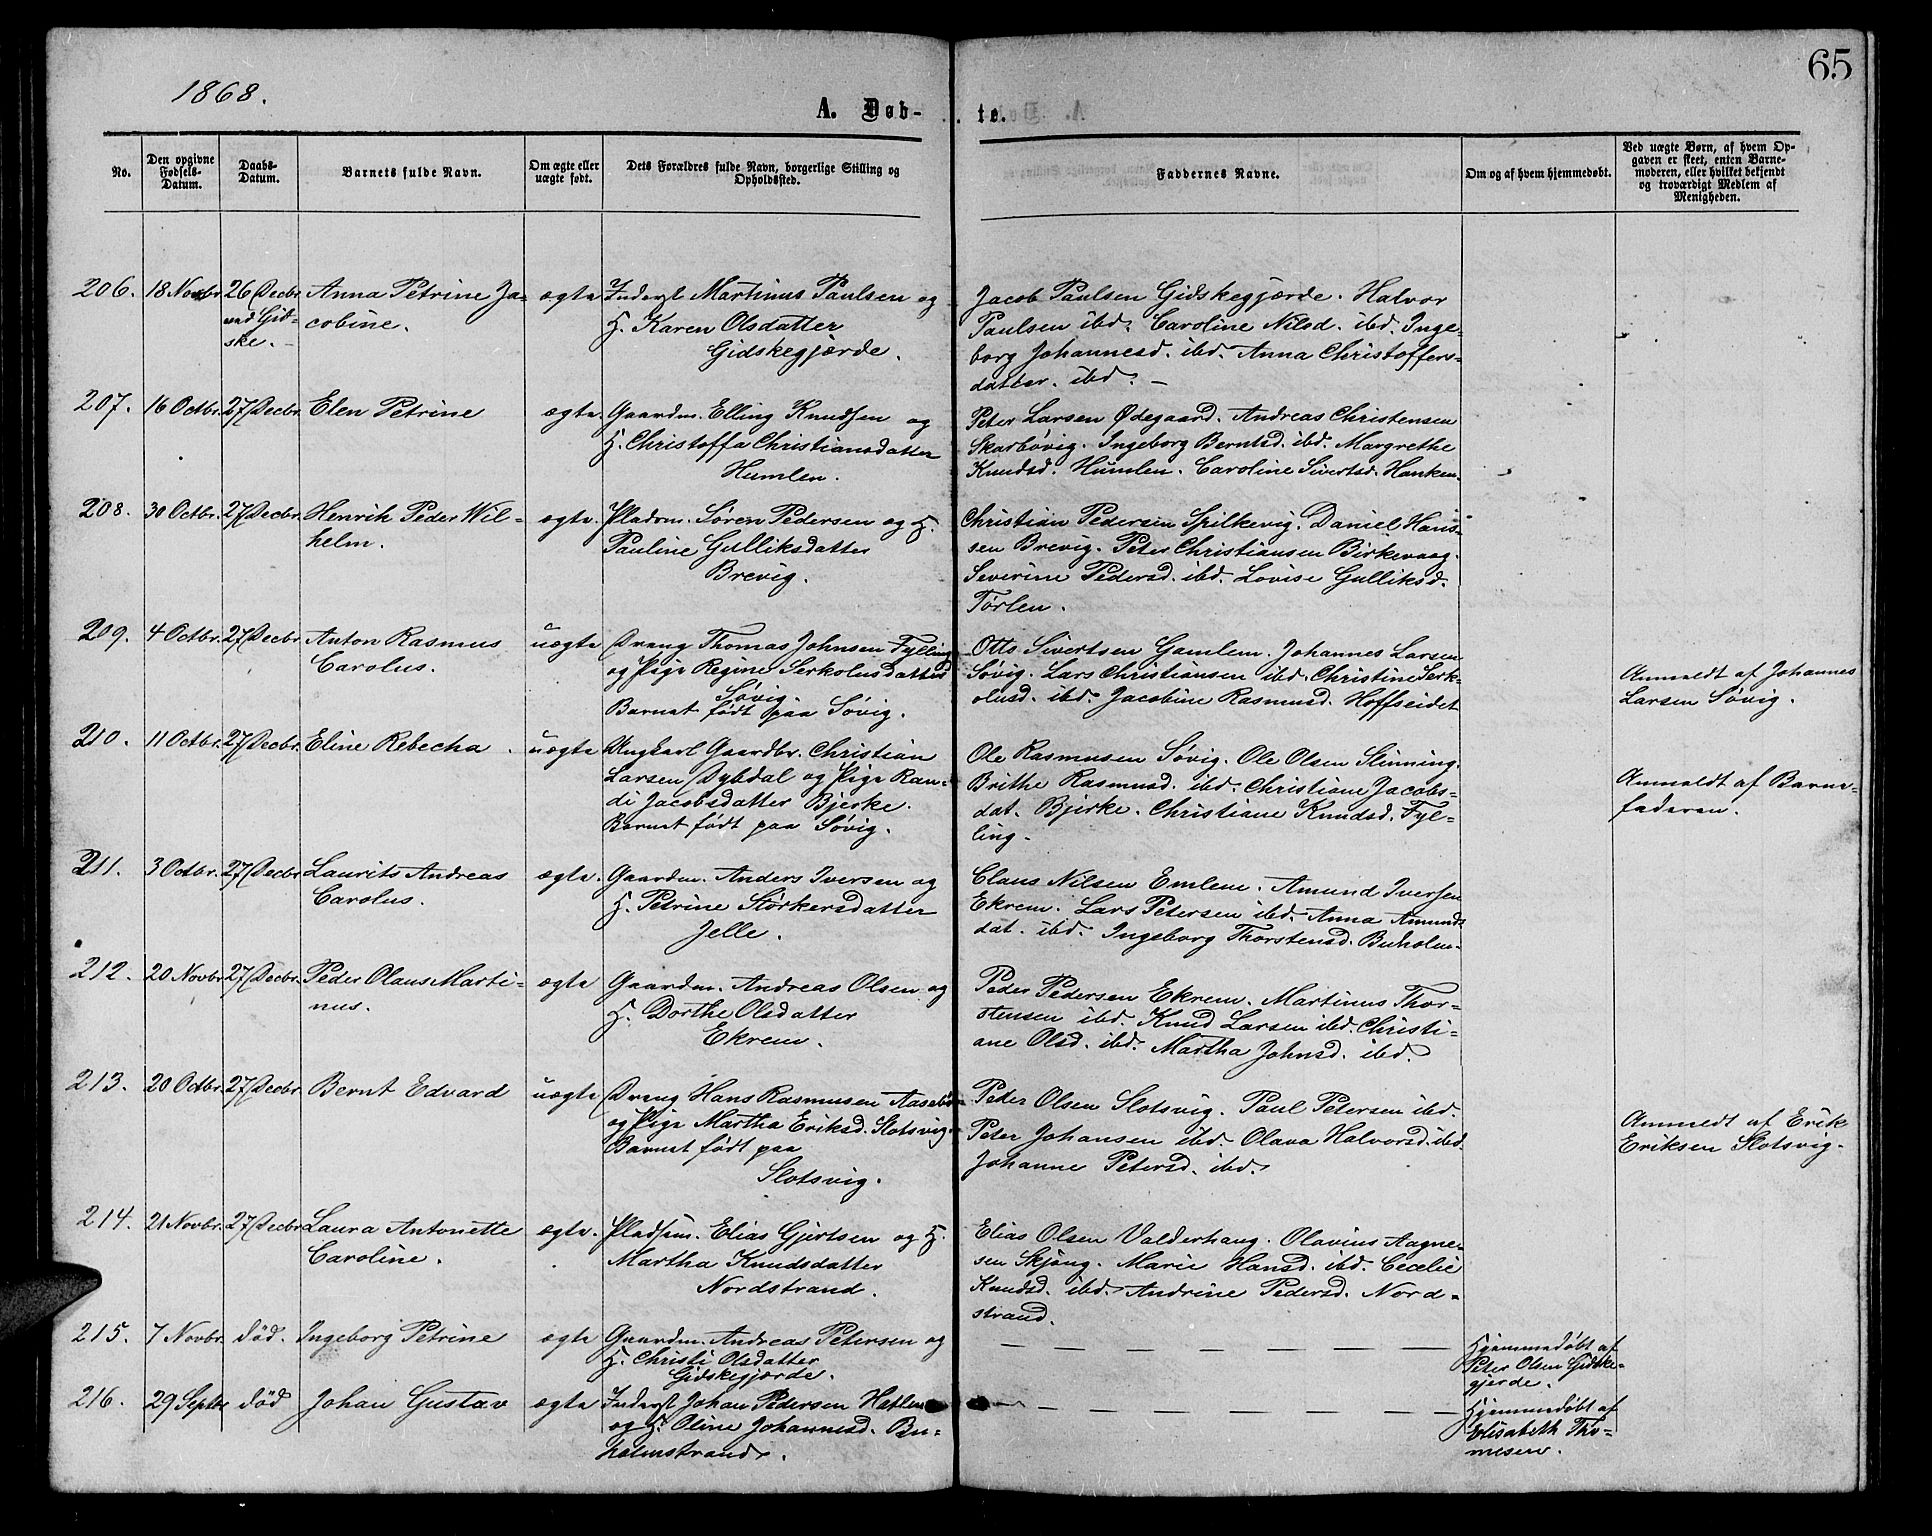 65
1868.
A. Døb-
te.
No.
Den opgivne Fødsels-Datum.
Daabs-Datum.
Barnets fulde Navn.
Om ægte eller uægte født.
Dets Forældres fulde Navn, borgerlige Stilling og Opholdssted.
Faddernes Navne.
Om og af hvem hjemmedøbt.
Ved uægte Børn, af hvem Op-
gaven er skeet, enten Barne-
moderen, eller hvilket bekjendt
og troværdigt Medlem af
Menigheden.
206. 18 Novbr 26 Decbr Anna Petrine Ja- ægte Inderst Martinus Paulsen og
ved Gid- cobine. H. Karen Olsdatter
ske. Gidskegjærde.
Jacob Paulsen Gidskegjærde. Halvor
Paulsen ibd. Caroline Nilsd. ibd. Inge-
borg Johannesd. ibd. Anna Christoffers-
datter. ibd.
207. 16 Octbr. 27 Decbr. Elen Petrine ægte Gaardm. Elling Knudsen og
H. Christoffa Christiansdatter
Humlen.
Peter Larsen Ødegaard. Andreas Christensen
Skarbøvig. Ingeborg Berntsd. ibd. Margrethe
Knudsd. Humlen. Caroline Sivertsd. Hanken.
208. 30 Octbr. 27 Decbr. Henrik Peder Wil- ægte. Pladsm. Søren Pedersen og H.
helm. Pauline Gulliksdatter
Brevig.
Christian Pedersen Spilkevig. Daniel Hans-
sen Brevig. Peter Christiansen Birkevaag.
Severine Pedersd. ibd. Lovise Gulliksd.
Tørlen.
209. 4 Octbr. 27 Decbr. Anton Rasmus uægte Dreng Thomas Johnsen Fylling
Carolus. og Pige Regine Serkolusdatter
Søvig.
Barnet født paa Søvig.
Otto Sivertsen Gamlem. Johannes Larsen
Søvig. Lars Christiansen ibd. Christine Serk-
olusd. ibd. Jacobine Rasmusd. Hoffseidet
Anmeldt af Johannes
Larsen Søvig.
210. 11 Octbr. 27 Decbr. Eline Rebecha. uægte Ungkarl Gaardbr. Christian
Larsen Dybdal og Pige Ran-
di Jacobsdatter Bjerke.
Barnet født paa Søvig.
Ole Rasmusen Søvig. Ole Olsen Slinning.
Brithe Rasmusd. ibd. Christiane Jacobs-
dat. Bjerke. Christiane Knudsd. Fyl-
ling.
Anmeldt af Barne-
faderen.
211. 3 Octbr. 27 Decbr Laurits Andreas ægte. Gaardm. Anders Iversen og
Carolus. H. Petrine Størkersdatter
Jelle.
Claus Nilsen Emlem. Amund Iversen
Ekrem. Lars Petersen ibd. Anna Amunds
dat. ibd. Ingeborg Thorstensd. Buholm.
212. 20 Novbr 27 Decbr. Peder Olaus Marti- ægte Gaardm. Andreas Olsen og
nus. H. Dorthe Olsdatter
Ekrem.
Peder Pedersen Ekrem. Martinus Thor-
stensen ibd. Knud Larsen ibd. Christi-
ane Olsd. ibd. Martha Johnsd. ibd.
213. 20 Octbr. 27 Decbr Bernt Edvard uægte Dreng Hans Rasmusen
og Pige Martha Eriksd. Slotsvig.
Barnet født paa
Slotsvig.
Peder Olsen Slotsvig. Paul Petersen ibd.
Peter Johansen ibd. Olava Halvorsd. ibd.
Johanne Petersd. ibd.
Anmedt af Erik
Eriksen Slotsvig.
214. 21 Novbr. 27 Decbr Laura Antonette ægte. Pladsm. Elias Gjertsen og H.
Caroline. Martha Knudsdatter
Nordstrand.
Elias Olsen Valderhaug. Olavius Aagne-
sen Skjong. Marie Hansd. ibd. Cecelie
Knudsd. ibd. Andrine Pedersd. Nord-
strand.
215. 7 Novbr. død. Ingeborg Petrine ægte Gaardm. Andreas Petersen og
H. Christi Olsdatter
Gidskegjærde.
Hjemmedøbt af
Peter Olsen Gidske-
gjerde.
216. 29 Septbr død Johan Gustav ægte Inderst Johan Pedersen Hatlen
og H. Oline Johannesd. Bu-
holmstrand.
Hjemmedøbt af
Elisabeth Tho-
mesen.